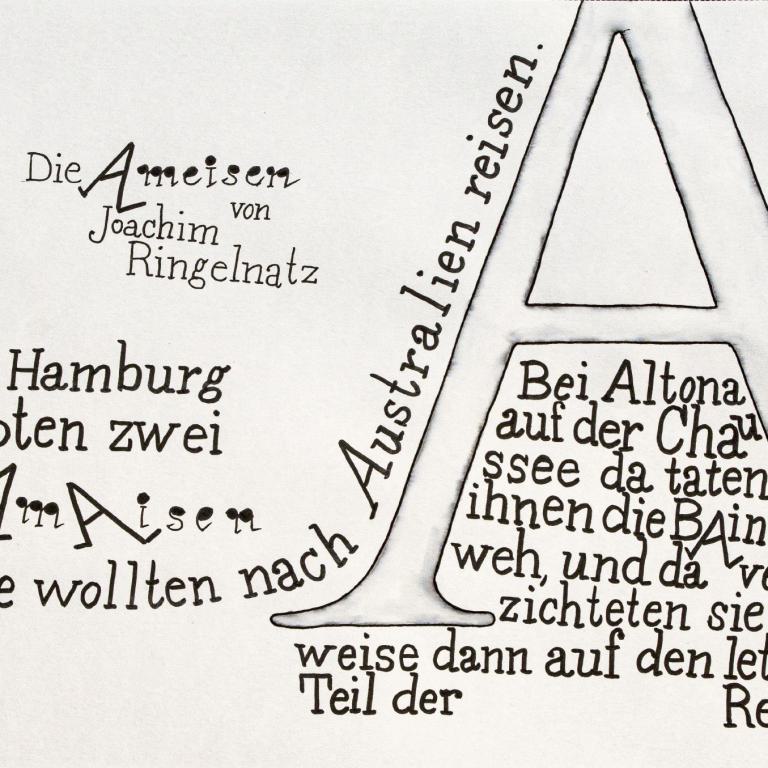 Die Ameisen
von
Joachim
Ringelnatz
Hamburg
zwei
AmAisen
wollten nach Australien reisen.
Bei Altona
auf der Chau
ssee da taten
ihnen die BAin
weh, und da ve
zichteten sie
weise dann auf den let
Teil der Re